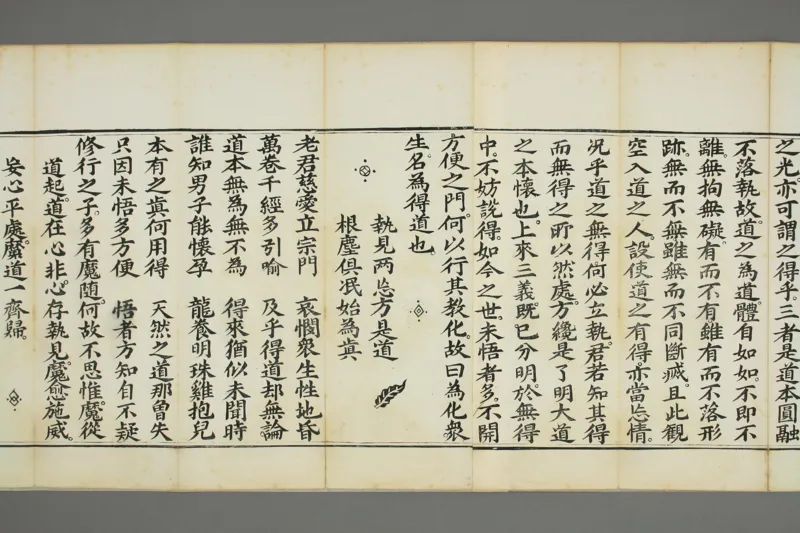 之光。亦可謂之得乎。三者是道本圓融
不落執故。道之為道。體自如如。不即不
離。無拘無礙。有而不有。雖有而不落形
跡。無而不無。雖無而不同斷滅。且此觀
空入道之人。設使道之有得。亦當忘情。
況乎道之無得。何必立執。君若知其得
而無得之所以然處。方纔是了明大道
之本懷也。上來三義。既已分明。於無得
中。不妨說得。如今之世。未悟者多。不開
方便之門。何以行其教化。故曰為化衆
生。名為得道也。
執見两忘方是道
根塵俱泯始為眞
老君慈愛立宗門 哀憫衆生性地昏
萬卷千經多引喻 及乎得道却無論
道本無為無不為 得來猶似未聞時
誰知男子能懷孕 龍養明珠雞抱兒
本有之眞何用得 天然之道那曾失
只因未悟多方便 悟者方知自不疑
修行之子。多有魔隨。何故不思惟。魔從
道起。道在心非。心存執見。魔愈施威。
安心平處。魔道一齊歸。